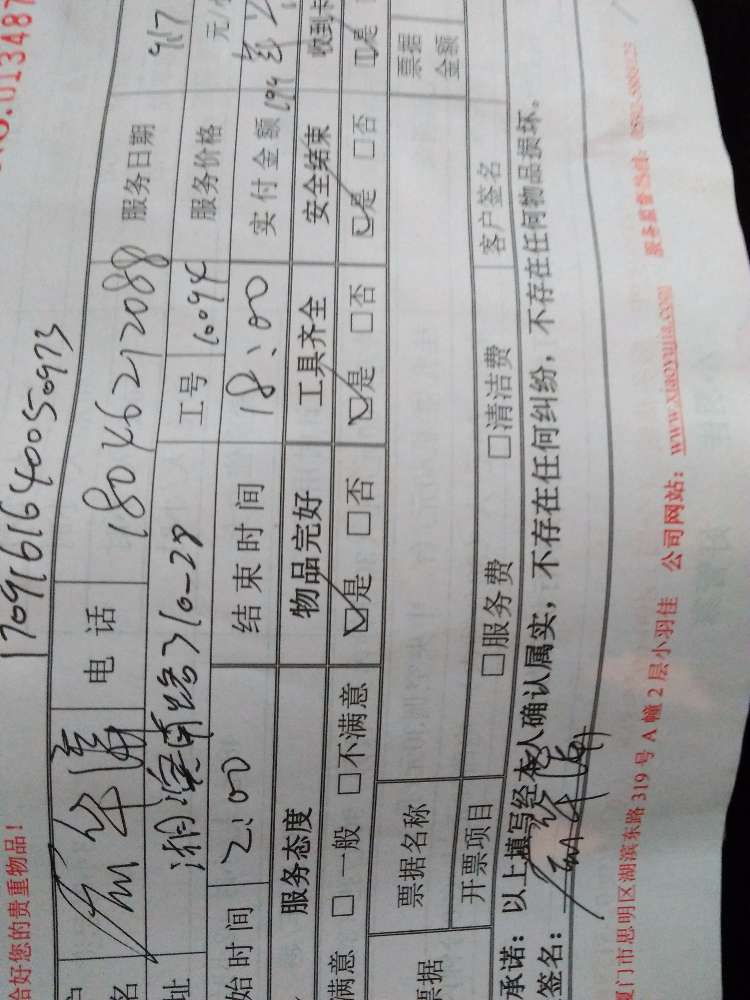 NO.0134870
恰好您的贵重物品!
1709161640050973
户名 电话 18046212088 服务日期 9.17
址 湖滨南路310-28 工号 6094 服务价格 元/
始时间 2:00 结束时间 18:00 实付金额
服务态度 物品完好 工具齐全 安全结束 收到卡
满意 □一般 □不满意 ☑是 □否 ☑是 □否 ☑是 □否 ☑是
票据 票据名称 票据金额
开票项目 □服务费 □清洁费 客户签名
承诺:以上填写经本人确认属实,不存在任何纠纷,不存在任何物品损坏。
签名:
厦门市思明区湖滨东路319号A幢2层小羽佳 公司网站:www.xiaoyujia.com 服务监督热线: